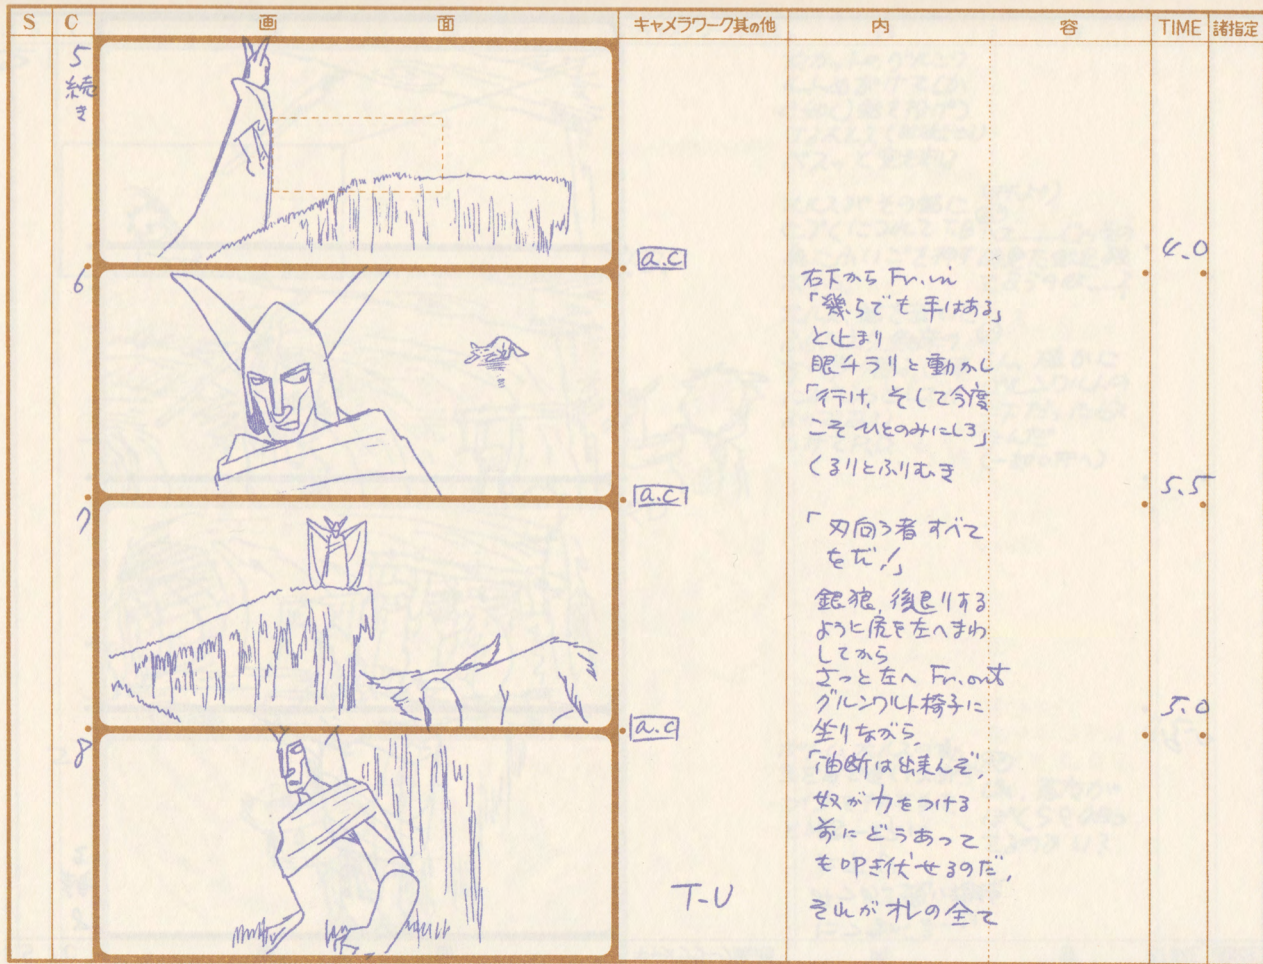 S C 画面 キャメラワーク其の他 内容 TIME 諸指定
5
続き
a.c
4.0
6
右下から Fr.in
「幾らでも手はある」
と止まり
眼チラリと動かし
「行け、そして今度
こそひとのみにしろ」
くるりとふりむき
a.c
5.5
7
「刃向う者すべて
をだ!」
銀狼、後退りする
ように尻を左へまわ
してから
さっと左へ Fr.out
グルンワルト椅子に
a.c
5.0
坐りながら、
8
「油断は出来んぞ、
奴が力をつける
前にどうあって
も叩き伏せるのだ、
T-U
それがオレの全て